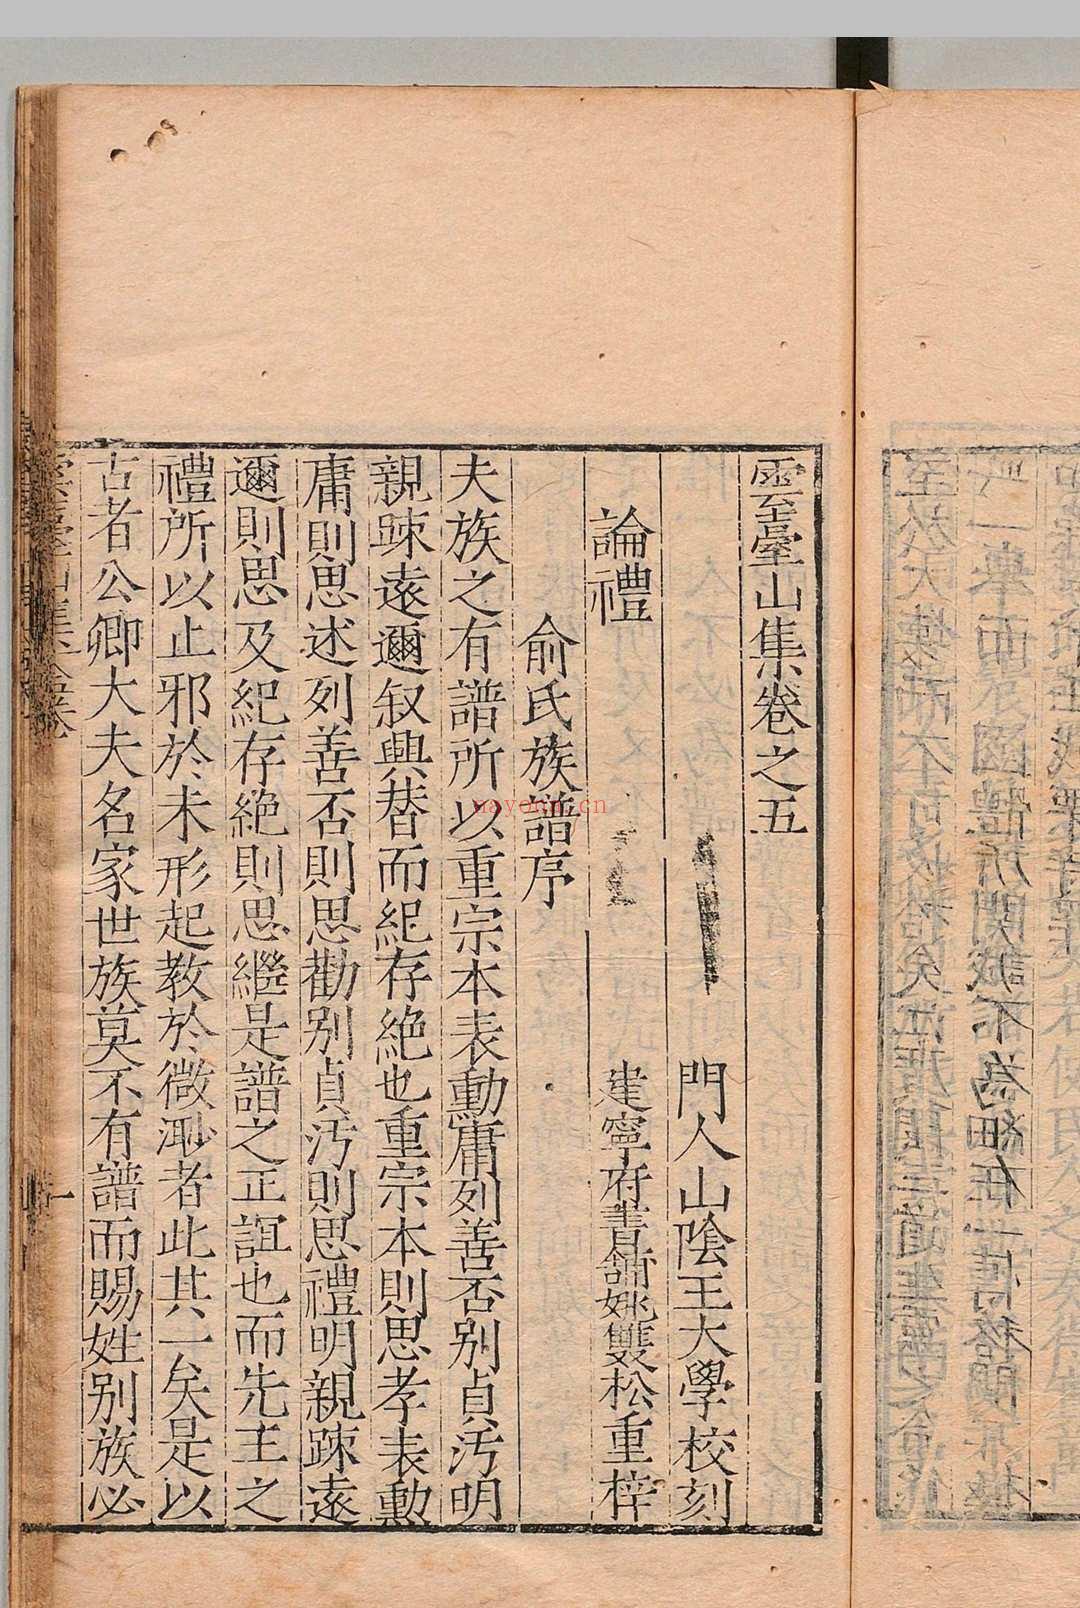 雲臺山集卷之五
門人山陰王大學校刻
論禮
建寧府書舖姚雙松重梓
俞氏族譜序
夫族之有譜所以重宗本表勳庸列善否别貞汚明
親踈遠邇叙興替而紀存絶也重宗本則思孝表勳
庸則思述列善否則思勸别貞汚則思禮明親踈遠
邇則思及紀存絶則思繼是譜之正誼也而先主之
禮所以止邪於未形起教於微渺者此其一矣是以
古者公卿大夫名家世族莫不有譜而賜姓别族必
nayoun.cn